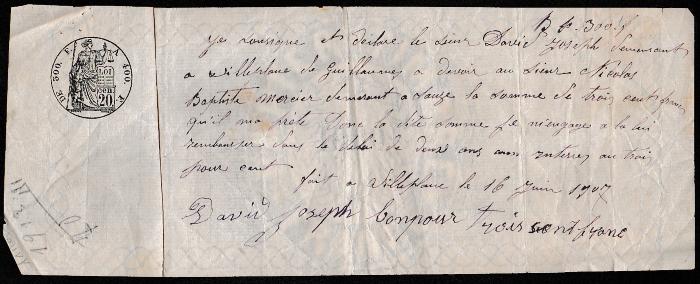 B.P. 300 f
Je sousigne et déclare le sieur David Joseph demeurant
a Villeplane de Guillaumes a devoir au sieur Nicolas
Baptiste Mercier demeurant a Sauze la somme de trois cent franc
qu'il ma prêté donc la dite somme je m'engage a la lui
rembourser dans le délai de deux ans avec interres au trois
pour cent
fait a Villeplane le 16 Juin 1907
David Joseph bonpour trois cent franc
DE 300 F. A 400 F.
LOI
20